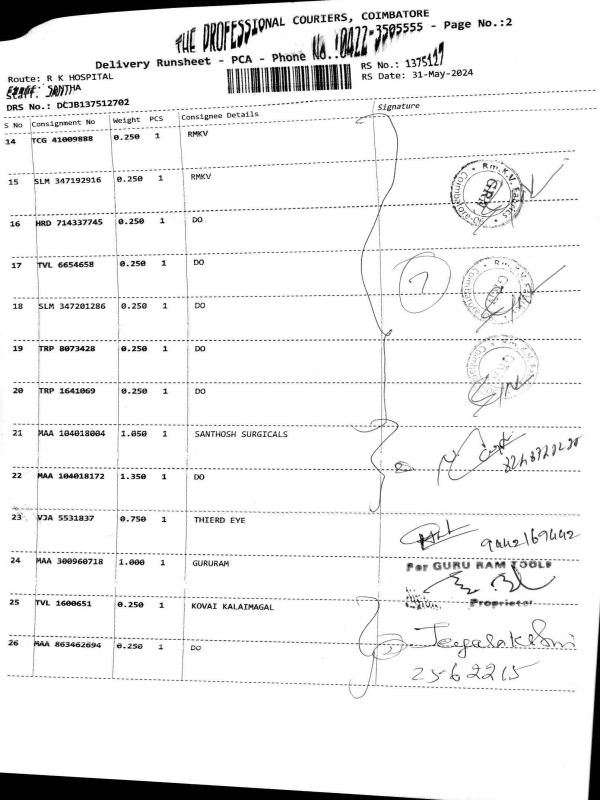 THE PROFESSIONAL COURIERS, COIMBATORE
Delivery Runsheet - PCA - Phone No.:0422-3505555 - Page No.:2
Route: R K HOSPITAL
RS No.: 1375127
Staff: SANTHA
RS Date: 31-May-2024
DRS No.: DCJB137512702
S No Consignment No Weight PCS Consignee Details Signature
14 TCG 41009888 0.250 1 RMKV
15 SLM 347192916 0.250 1 RMKV
Rm.K.V. Fabrics
GRN
16 HRD 714337745 0.250 1 DO
17 TVL 6654658 0.250 1 DO
7
Rm.K.V. Fabrics
18 SLM 347201286 0.250 1 DO
19 TRP 8073428 0.250 1 DO
20 TRP 1641069 0.250 1 DO
21 MAA 104018004 1.050 1 SANTHOSH SURGICALS
22 MAA 104018172 1.350 1 DO
23 VJA 5531837 0.750 1 THIERD EYE
9442169442
24 MAA 300960718 1.000 1 GURURAM
For GURU RAM TOOLS
Proprietor
25 TVL 1600651 0.250 1 KOVAI KALAIMAGAL
26 MAA 863462694 0.250 1 DO
2
2562215